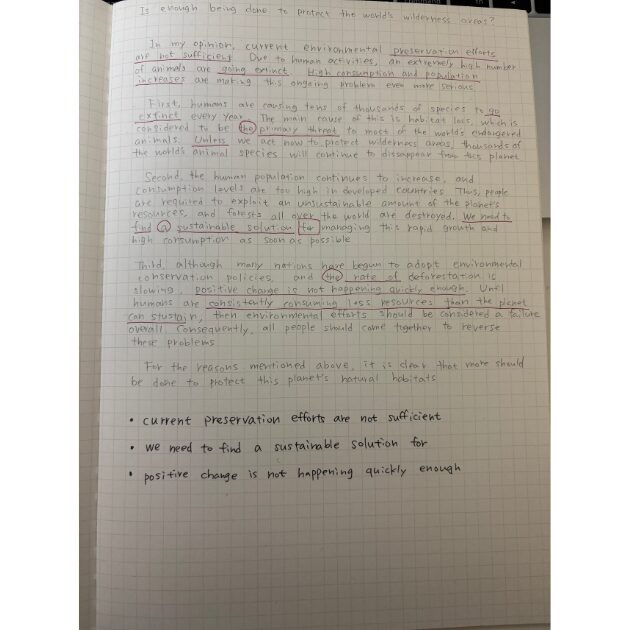 Is enough being done to protect the world's wilderness areas?
In my opinion, current environmental preservation efforts
are not sufficient. Due to human activities, an extremely high number
of animals are going extinct. High consumption and population
increases are making this ongoing problem even more serious.
First, humans are causing tens of thousands of species to go
extinct every year. The main cause of this is habitat loss, which is
considered to be the primary threat to most of the world's endangered
animals. Unless we act now to protect wilderness areas, thousands of
the world's animal species will continue to dissapear from this planet.
Second, the human population continues to increase, and
consumption levels are too high in developed countries. Thus, people
are required to exploit an unsustainable amount of the planet's
resources, and forests all over the world are destroyed. We need to
find a sustainable solution for managing this rapid growth and
high consumption as soon as possible
Third, although many nations have begun to adopt environmental
conservation policies, and the rate of deforestation is
slowing, positive change is not happening quickly enough. Until
humans are consistently consuming less resources than the planet
can stustain, then environmental efforts should be considered a failure
overall. Consequently, all people should come together to reverse
these problems
For the reasons mentioned above, it is clear that more should
be done to protect this planet's natural habitats
• current preservation efforts are not sufficient
• we need to find a sustainable solution for
• positive change is not happening quickly enough